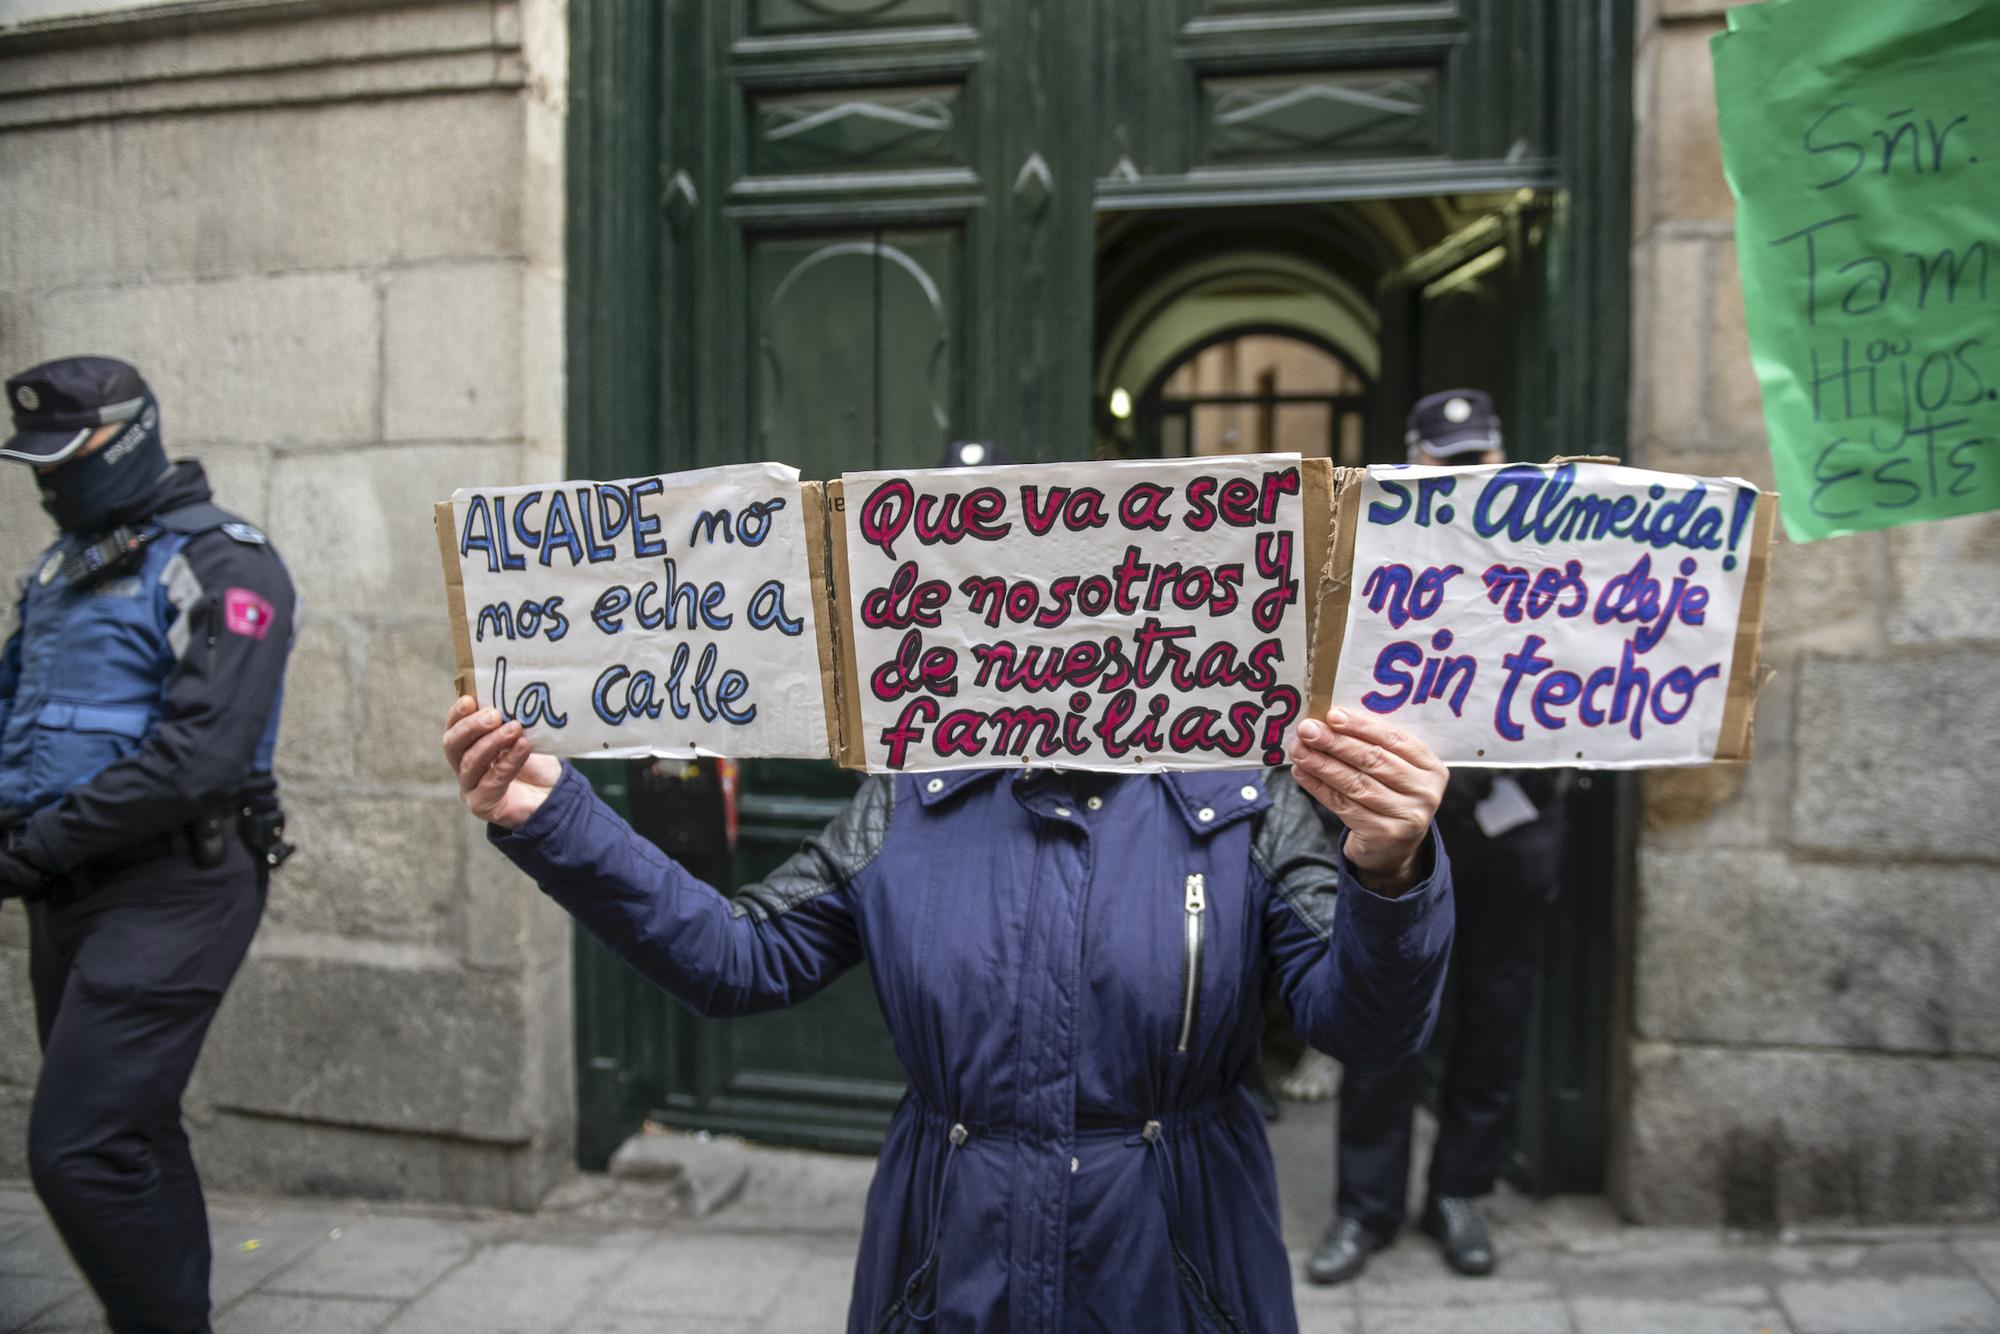 ALCALDE no
nos eche a
la calle
Que va a ser
de nosotros y
de nuestras
familias?
Sr. Almeida!
no nos deje
sin techo
Sñr.
Tam
Hijos.
ESTE